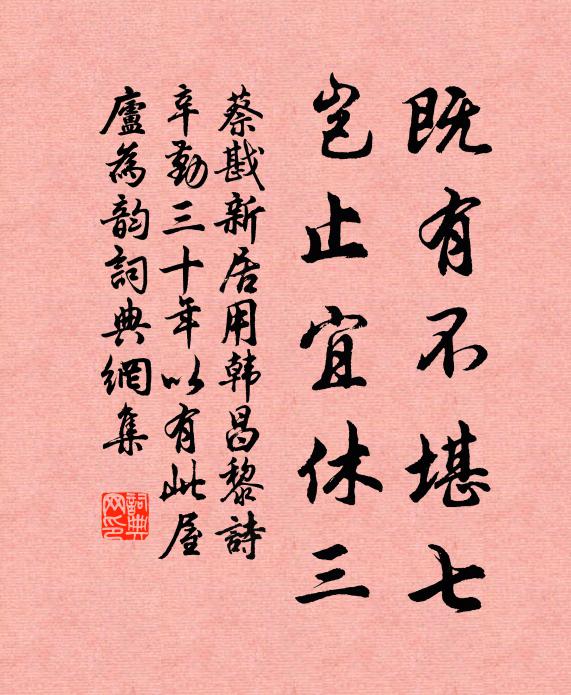 既有不堪七
豈止宜休三
蔡戡新居用韩昌黎詩
辛勤三十年以有此屋
廬為韵詞典網集
詞典网印